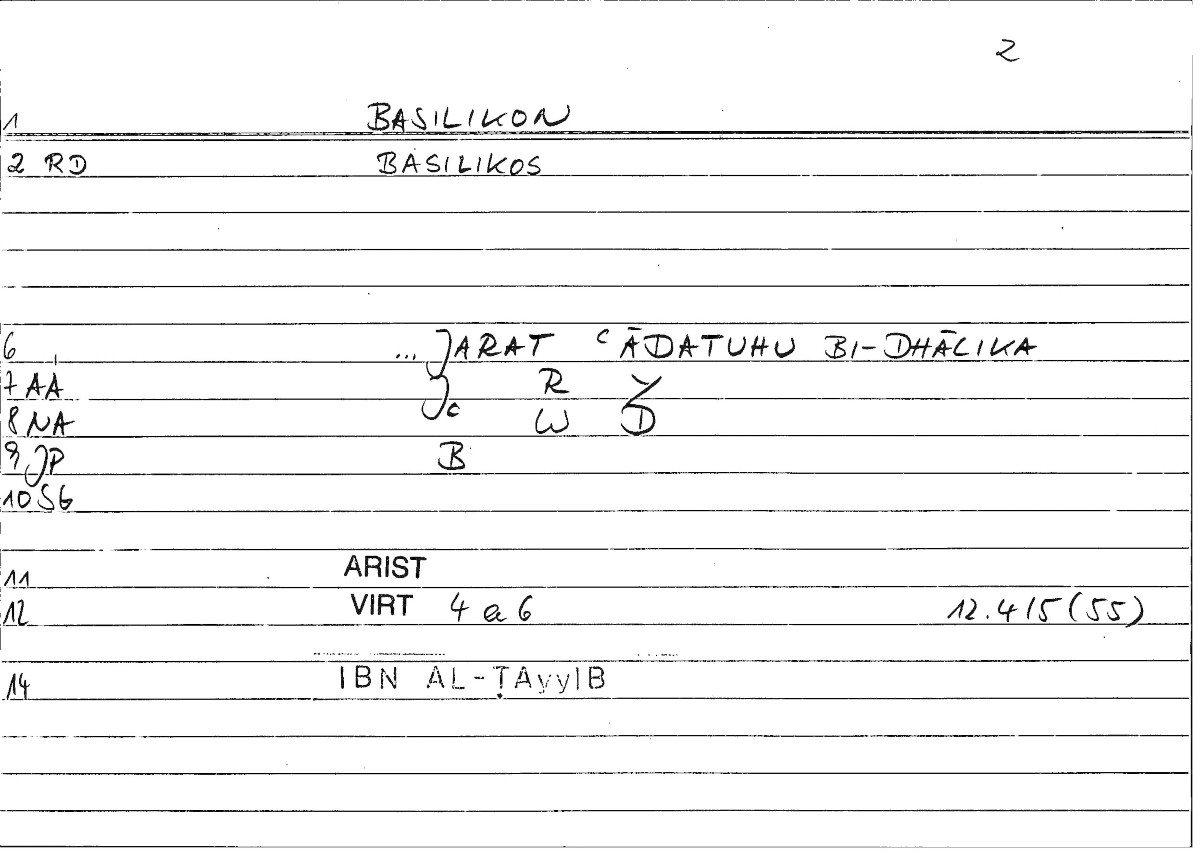 2
1 BASILIKON
2 RD BASILIKOS
6 ... JARAT ᶜĀDATUHU BI-DHĀLIKA
7 AA J R Y
8 NA c W D
9 JP B
10 SG
11 ARIST
12 VIRT 4 a 6 12.4/5 (55)
14 IBN AL-ṬAyyIB